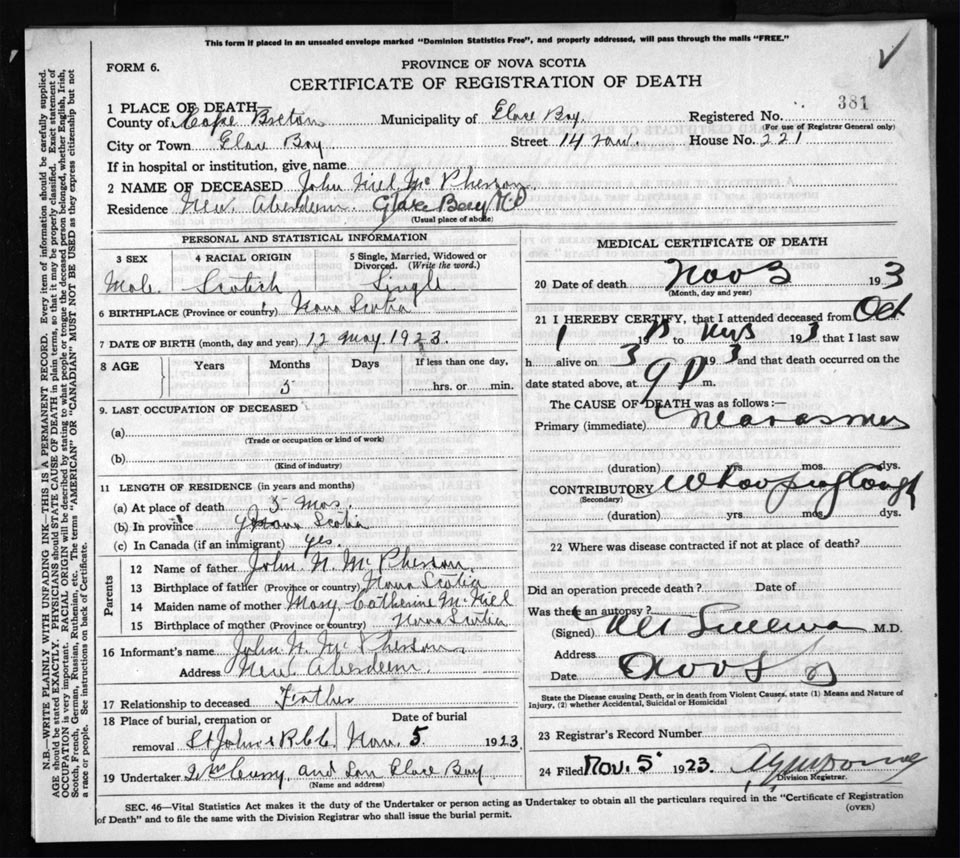 This form if placed in an unsealed envelope marked "Dominion Statistics Free", and properly addressed, will pass through the mails "FREE."
FORM 6.
PROVINCE OF NOVA SCOTIA
CERTIFICATE OF REGISTRATION OF DEATH
381
1 PLACE OF DEATH—
County of Cape Breton Municipality of Glace Bay Registered No.
(For use of Registrar General only)
City or Town Glace Bay Street 14 House No. 221
If in hospital or institution, give name
2 NAME OF DECEASED John Niel McPherson
Residence New Aberdeen Glace Bay
(Usual place of abode)
PERSONAL AND STATISTICAL INFORMATION
3 SEX 4 RACIAL ORIGIN 5 Single, Married, Widowed or Divorced. (Write the word.)
Male Scotich Single
6 BIRTHPLACE (Province or country) Nova Scotia
7 DATE OF BIRTH (month, day and year) 12 May 1923.
8 AGE Years Months Days If less than one day,
5 hrs. or min.
9. LAST OCCUPATION OF DECEASED
(a)
(Trade or occupation or kind of work)
(b)
(Kind of industry)
11 LENGTH OF RESIDENCE (in years and months)
(a) At place of death 5 Mos.
(b) In province Nova Scotia
(c) In Canada (if an immigrant) yes.
Parents
12 Name of father John N. McPherson
13 Birthplace of father (Province or country) Nova Scotia
14 Maiden name of mother Mary Catherine McNiel
15 Birthplace of mother (Province or country) Nova Scotia
16 Informant's name John N. McPherson
Address New Aberdeen.
17 Relationship to deceased Father
18 Place of burial, cremation or removal Date of burial
St John's R.C.C. Nov. 5 1923
19 Undertaker and Son Glace Bay
(Name and address)
MEDICAL CERTIFICATE OF DEATH
20 Date of death Nov 3 193
(Month, day and year)
21 I HEREBY CERTIFY, that I attended deceased from Oct
1 19 to 193 that I last saw
h alive on 3 193 and that death occurred on the
date stated above, at 9 P m.
The CAUSE OF DEATH was as follows:—
Primary (immediate) Marasmus
(duration) yrs. mos. dys.
CONTRIBUTORY Whooping Cough
(Secondary)
(duration) yrs. mos. dys.
22 Where was disease contracted if not at place of death?
Did an operation precede death? Date of
Was there an autopsy?
(Signed) M.D.
Address
Date Nov 5
State the Disease causing Death, or in death from Violent Causes, state (1) Means and Nature of Injury, (2) whether Accidental, Suicidal or Homicidal
23 Registrar's Record Number
24 Filed Nov. 5 1923
Division Registrar.
SEC. 46—Vital Statistics Act makes it the duty of the Undertaker or person acting as Undertaker to obtain all the particulars required in the "Certificate of Registration
of Death" and to file the same with the Division Registrar who shall issue the burial permit. (OVER)
N.B.—WRITE PLAINLY WITH UNFADING INK—THIS IS A PERMANENT RECORD. Every item of information should be carefully supplied.
AGE should be stated EXACTLY. PHYSICIANS should STATE CAUSE OF DEATH in plain terms, so that it may be properly classified. Exact statement of
OCCUPATION is very important. RACIAL ORIGIN will be described by stating to what people or tongue the deceased person belonged, whether English, Irish,
Scotch, French, German, Russian, Ruthenian, etc. The terms "AMERICAN" or "CANADIAN" MUST NOT BE USED as they express citizenship but not
a race or people. See instructions on back of Certificate.